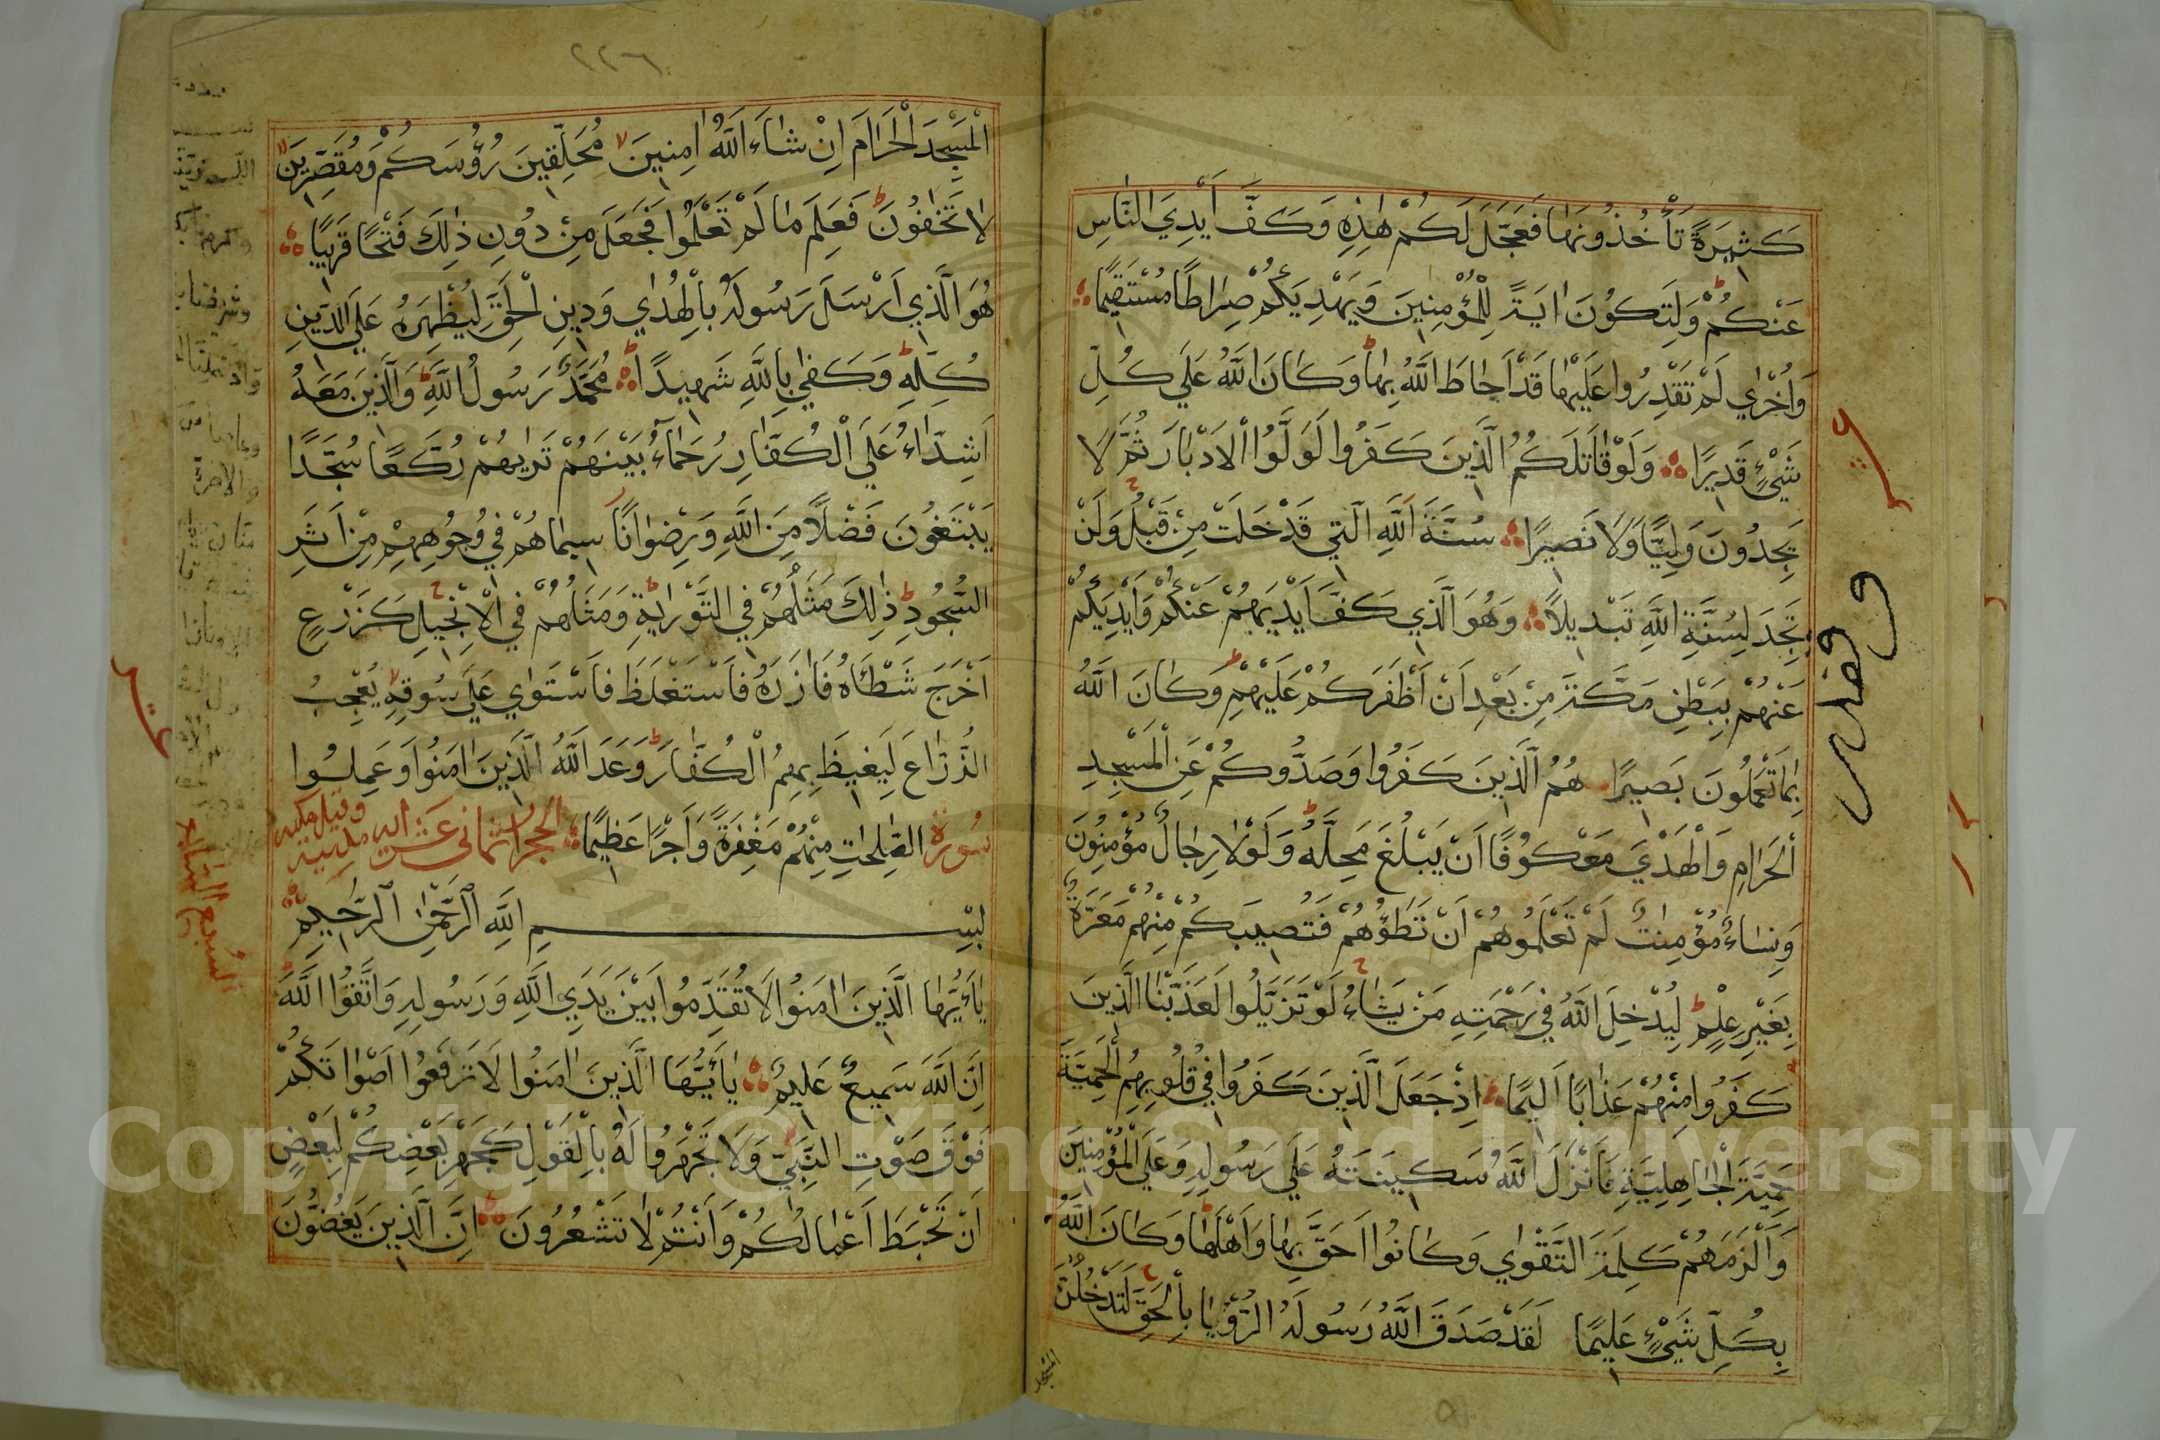 كَثِيرَةً تَأْخُذُونَهَا فَعَجَّلَ لَكُمْ هٰذِهِ وَكَفَّ اَيْدِيَ النَّاسِ
عَنْكُمْ وَلِتَكُونَ اٰيَةً لِلْمُؤْمِنِينَ وَيَهْدِيَكُمْ صِرَاطًا مُسْتَقِيمًا
وَاُخْرٰي لَمْ تَقْدِرُوا عَلَيْهَا قَدْ اَحَاطَ اللَّهُ بِهَا وَكَانَ اللَّهُ عَلَي كُلِّ
شَيْءٍ قَدِيرًا وَلَوْ قَاتَلَكُمُ الَّذِينَ كَفَرُوا لَوَلَّوُا الْاَدْبَارَ ثُمَّ لَا
يَجِدُونَ وَلِيًّا وَلَا نَصِيرًا سُنَّةَ اللَّهِ الَّتِي قَدْ خَلَتْ مِنْ قَبْلُ وَلَنْ
تَجِدَ لِسُنَّةِ اللَّهِ تَبْدِيلًا وَهُوَ الَّذِي كَفَّ اَيْدِيَهُمْ عَنْكُمْ وَاَيْدِيَكُمْ
عَنْهُمْ بِبَطْنِ مَكَّةَ مِنْ بَعْدِ اَنْ اَظْفَرَكُمْ عَلَيْهِمْ وَكَانَ اللَّهُ
بِمَا تَعْمَلُونَ بَصِيرًا هُمُ الَّذِينَ كَفَرُوا وَصَدُّوكُمْ عَنِ الْمَسْجِدِ
الْحَرَامِ وَالْهَدْيَ مَعْكُوفًا اَنْ يَبْلُغَ مَحِلَّهُ وَلَوْلَا رِجَالٌ مُؤْمِنُونَ
وَنِسَاءٌ مُؤْمِنٰتٌ لَمْ تَعْلَمُوهُمْ اَنْ تَطَؤُهُمْ فَتُصِيبَكُمْ مِنْهُمْ مَعَرَّةٌ
بِغَيْرِ عِلْمٍ لِيُدْخِلَ اللَّهُ فِي رَحْمَتِهِ مَنْ يَشَاءُ لَوْ تَزَيَّلُوا لَعَذَّبْنَا الَّذِينَ
كَفَرُوا مِنْهُمْ عَذَابًا اَلِيمًا اِذْ جَعَلَ الَّذِينَ كَفَرُوا فِي قُلُوبِهِمُ الْحَمِيَّةَ
حَمِيَّةَ الْجَاهِلِيَّةِ فَاَنْزَلَ اللَّهُ سَكِينَتَهُ عَلَي رَسُولِهِ وَعَلَي الْمُؤْمِنِينَ
وَاَلْزَمَهُمْ كَلِمَةَ التَّقْوٰي وَكَانُوا اَحَقَّ بِهَا وَاَهْلَهَا وَكَانَ اللَّهُ
بِكُلِّ شَيْءٍ عَلِيمًا لَقَدْ صَدَقَ اللَّهُ رَسُولَهُ الرُّؤْيَا بِالْحَقِّ لَتَدْخُلُنَّ
المسجد
٢٢٦
الْمَسْجِدَ الْحَرَامَ اِنْ شَاءَ اللَّهُ اٰمِنِينَ مُحَلِّقِينَ رُؤُسَكُمْ وَمُقَصِّرِينَ
لَا تَخَافُونَ فَعَلِمَ مَا لَمْ تَعْلَمُوا فَجَعَلَ مِنْ دُونِ ذٰلِكَ فَتْحًا قَرِيبًا
هُوَ الَّذِي اَرْسَلَ رَسُولَهُ بِالْهُدٰي وَدِينِ الْحَقِّ لِيُظْهِرَهُ عَلَي الدِّينِ
كُلِّهِ وَكَفٰي بِاللَّهِ شَهِيدًا مُحَمَّدٌ رَسُولُ اللَّهِ وَالَّذِينَ مَعَهُ
اَشِدَّاءُ عَلَي الْكُفَّارِ رُحَمَاءُ بَيْنَهُمْ تَرٰيهُمْ رُكَّعًا سُجَّدًا
يَبْتَغُونَ فَضْلًا مِنَ اللَّهِ وَرِضْوَانًا سِيمَاهُمْ فِي وُجُوهِهِمْ مِنْ اَثَرِ
السُّجُودِ ذٰلِكَ مَثَلُهُمْ فِي التَّوْرٰيةِ وَمَثَلُهُمْ فِي الْاِنْجِيلِ كَزَرْعٍ
اَخْرَجَ شَطْأَهُ فَاٰزَرَهُ فَاسْتَغْلَظَ فَاسْتَوٰي عَلَي سُوقِهِ يُعْجِبُ
الزُّرَّاعَ لِيَغِيظَ بِهِمُ الْكُفَّارَ وَعَدَ اللَّهُ الَّذِينَ اٰمَنُوا وَعَمِلُوا
الصّٰلِحٰتِ مِنْهُمْ مَغْفِرَةً وَاَجْرًا عَظِيمًا
سورة الحجرات ثماني عشر اية مدنية وقيل مكية
بِسْمِ اللَّهِ الرَّحْمٰنِ الرَّحِيمِ
يَاأَيُّهَا الَّذِينَ اٰمَنُوا لَا تُقَدِّمُوا بَيْنَ يَدَيِ اللَّهِ وَرَسُولِهِ وَاتَّقُوا اللَّهَ
اِنَّ اللَّهَ سَمِيعٌ عَلِيمٌ يَاأَيُّهَا الَّذِينَ اٰمَنُوا لَا تَرْفَعُوا اَصْوَاتَكُمْ
فَوْقَ صَوْتِ النَّبِيِّ وَلَا تَجْهَرُوا لَهُ بِالْقَوْلِ كَجَهْرِ بَعْضِكُمْ لِبَعْضٍ
اَنْ تَحْبَطَ اَعْمَالُكُمْ وَاَنْتُمْ لَا تَشْعُرُونَ اِنَّ الَّذِينَ يَغُضُّونَ
السبع السابع
Copyright © King Saud University